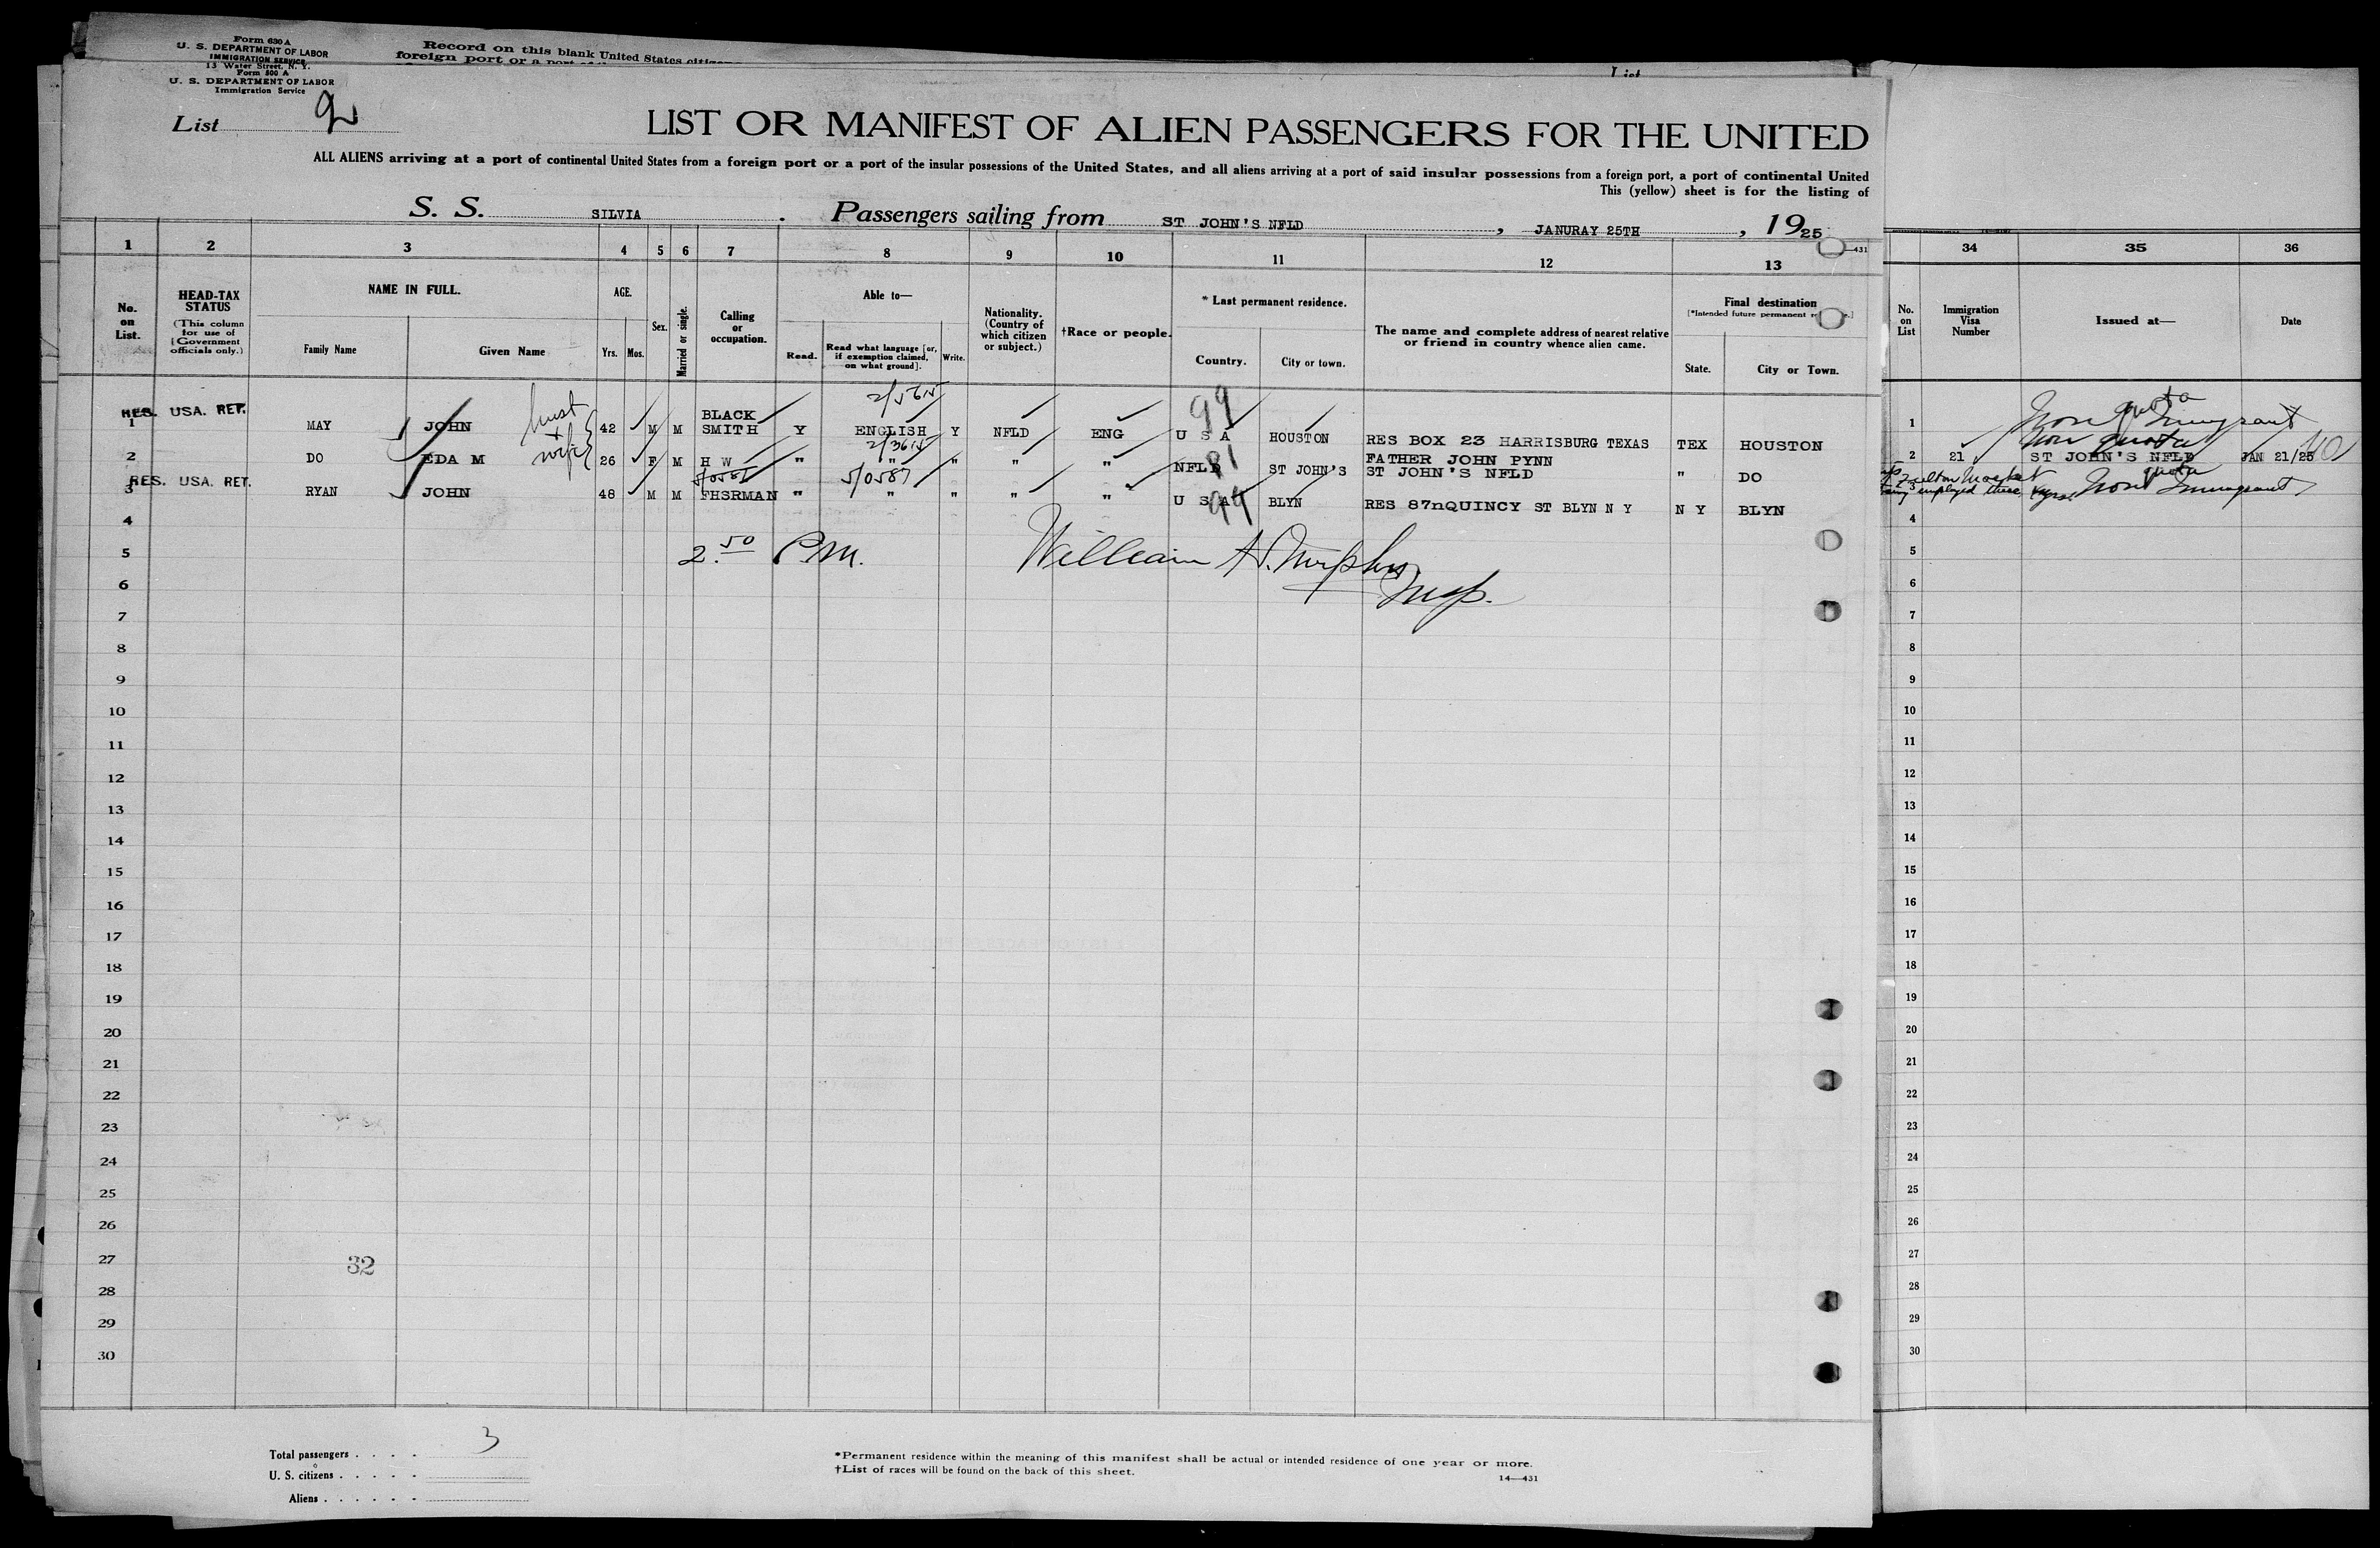 Form 630 A
U. S. DEPARTMENT OF LABOR
IMMIGRATION SERVICE
13 Water Street, N. Y.
Form 500 A
U. S. DEPARTMENT OF LABOR
Immigration Service
Record on this blank United States
foreign port or a port
List
List 2
LIST OR MANIFEST OF ALIEN PASSENGERS FOR THE UNITED
ALL ALIENS arriving at a port of continental United States from a foreign port or a port of the insular possessions of the United States, and all aliens arriving at a port of said insular possessions from a foreign port, a port of continental United
This (yellow) sheet is for the listing of
S. S. SILVIA . Passengers sailing from ST JOHN'S NFLD , JANURAY 25TH , 1925
1 2 3 4 5 6 7 8 9 10 11 12 13 34 35 36
14—431
No. on List.
HEAD-TAX STATUS
(This column for use of Government officials only.)
NAME IN FULL.
Family Name Given Name
AGE.
Yrs. Mos.
Sex.
Married or single.
Calling or occupation.
Able to—
Read. Read what language [or, if exemption claimed, on what ground]. Write.
Nationality. (Country of which citizen or subject.)
†Race or people.
* Last permanent residence.
Country. City or town.
The name and complete address of nearest relative or friend in country whence alien came.
Final destination
[*Intended future permanent
State. City or Town.
No. on List
Immigration Visa Number
Issued at—
Date
RES. USA. RET.
1 MAY JOHN 42 M M BLACK SMITH Y ENGLISH Y NFLD ENG U S A HOUSTON RES BOX 23 HARRISBURG TEXAS TEX HOUSTON
hust + wife
2/5615
99
1 Non quota Immigrant
2 DO EDA M 26 F M H W " " " " " NFLD ST JOHN'S FATHER JOHN PYNN ST JOHN'S NFLD " DO
2/3615
81
Non quota
2 21 ST JOHN'S NFLD JAN 21/25
RES. USA. RET.
3 RYAN JOHN 48 M M FHSRMAN " " " " " U S A BLYN RES 87nQUINCY ST BLYN N Y N Y BLYN
5/0587
99
Fulton Market
employed there
3 Non quota Immigrant
2.50 P.M. William H. Murphy
Insp.
4 4
5 5
6 6
7 7
8 8
9 9
10 10
11 11
12 12
13 13
14 14
15 15
16 16
17 17
18 18
19 19
20 20
21 21
22 22
23 23
24 24
25 25
26 26
27 27
32
28 28
29 29
30 30
Total passengers . . . . 3
U. S. citizens . . . . .
Aliens . . . . . .
*Permanent residence within the meaning of this manifest shall be actual or intended residence of one year or more.
†List of races will be found on the back of this sheet.
14—431